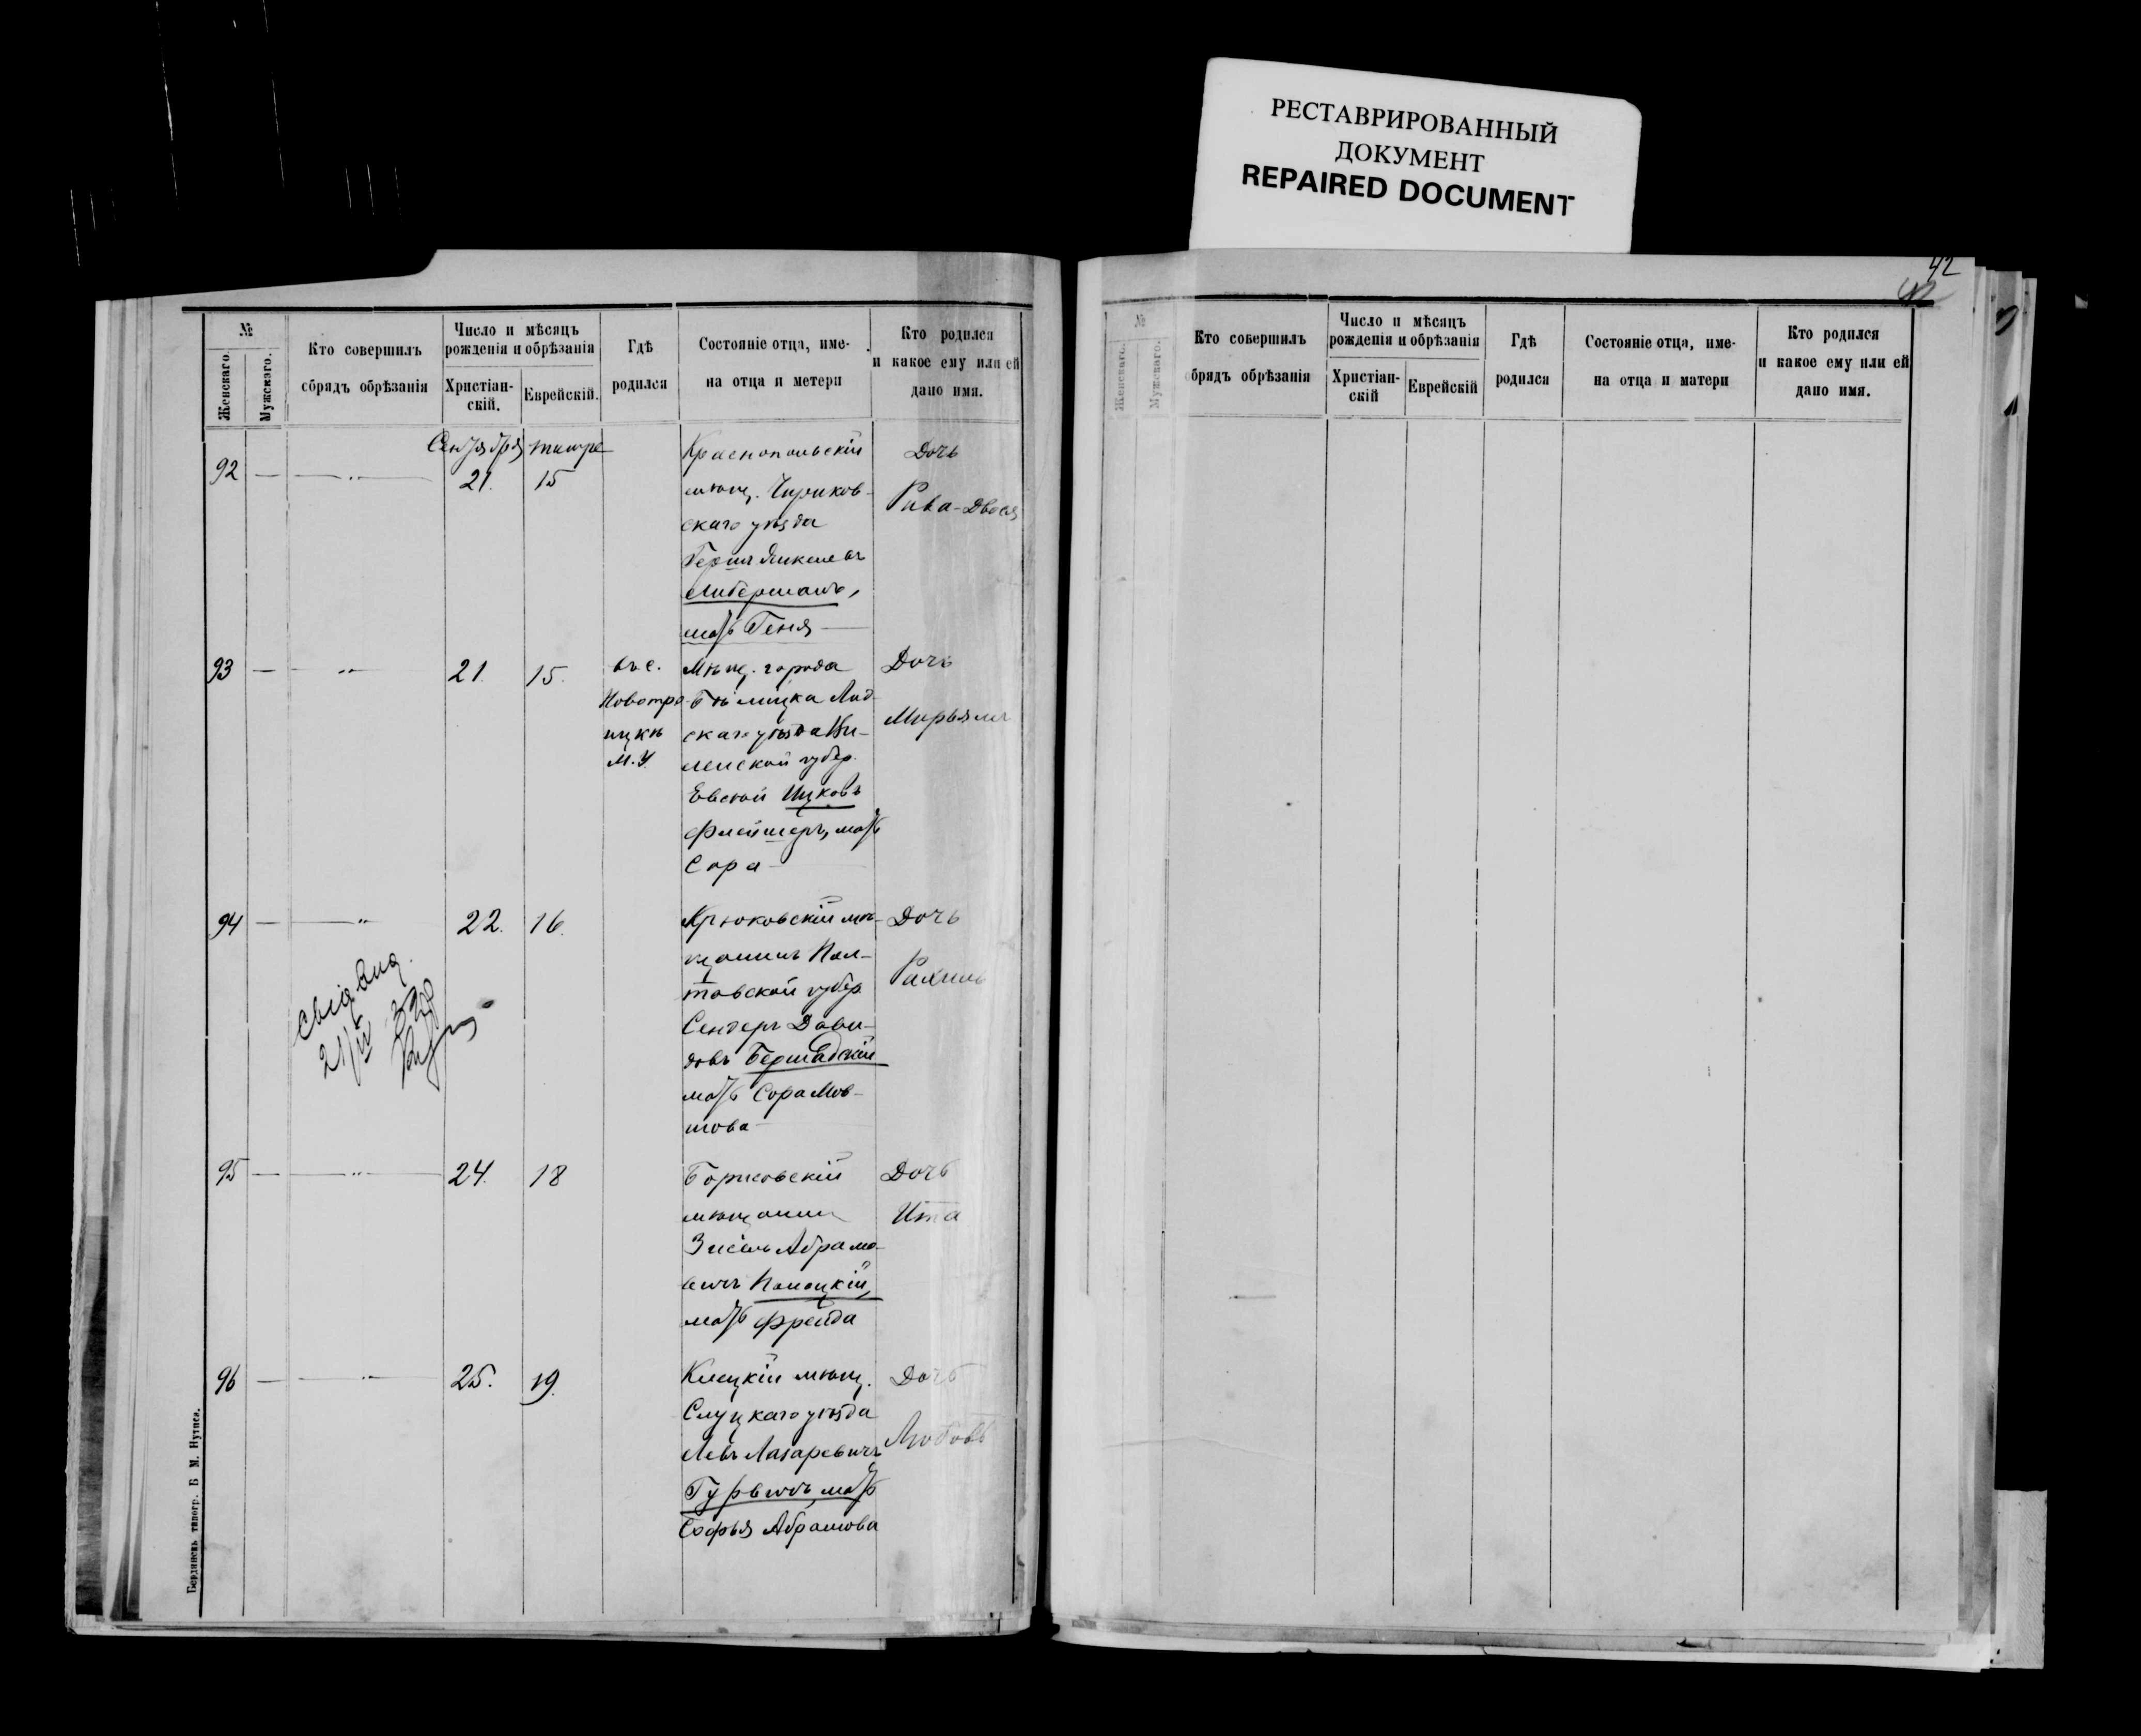 РЕСТАВРИРОВАННЫЙ
ДОКУМЕНТ
REPAIRED DOCUMENT
42
№
Женскаго.
Мужскаго.
Кто совершилъ
обрядъ обрѣзанія
Число и мѣсяцъ
рожденія и обрѣзанія
Христіан-
скій.
Еврейскій.
Гдѣ
родился
Состояніе отца, име-
на отца и метери
Кто родился
и какое ему или ей
дано имя.
Сентября тишре
92 — —„— 21. 15
Краснопольскій
мѣщ. Чириков-
скаго уѣзда
Герш Янкелевъ
Либерманъ,
мать Геня —
Дочь
Рива-Двося
93 — —„— 21. 15.
въ с.
Новотро-
ицкѣ
М. У.
Мѣщ. города
Бѣлицка Лид-
скаго уѣзда Ви-
ленской губер.
Евсѣй Ицковъ
Флейшеръ, мать
Сора —
Дочь
Мирьямъ
94 — —„— 22. 16.
Крюковскій мѣ-
щанинъ Пол-
тавской губер.
Сендеръ Дави-
довъ Бершадскій
мать Сора Мов-
шова
Дочь
Рахиль
21/IV
95 — —„— 24. 18
Борисовскій
мѣщанин
Зисель Абрамо-
вичъ Полоцкій,
мать Фрейда
Дочь
Ита
96 — —„— 25. 19.
Клецкій мѣщ.
Слуцкаго уѣзда
Левъ Лазаревичъ
Гурвичъ, мать
Софья Абрамова
Дочь
Любовь
Бердянскъ типогр. Б М. Нутиса.
№
Женскаго.
Мужскаго.
Кто совершилъ
обрядъ обрѣзанія
Число и мѣсяцъ
рожденія и обрѣзанія
Христіан-
скій
Еврейскій
Гдѣ
родился
Состояніе отца, име-
на отца и матери
Кто родился
и какое ему или ей
дано имя.